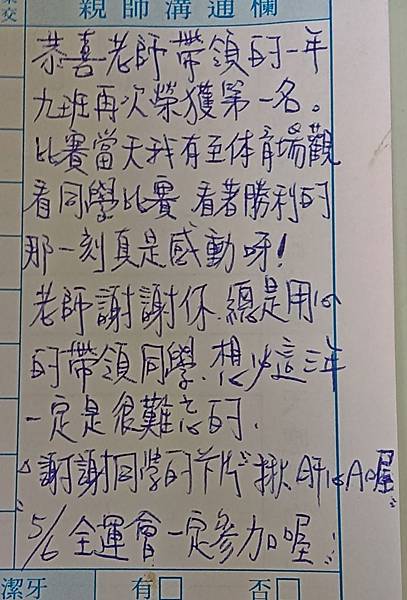 親師溝通欄
恭喜老師帶領的一年
九班再次榮獲第一名。
比賽當天我有至体育場觀
看同學比賽 看著勝利的
那一刻真是感動呀!
老師謝謝你.總是用心
的帶領同學.想必這三年
一定是很難忘的.
謝謝同學的卡片 揪甘心A喔
5/6 全運會一定參加喔
潔牙 有□ 否□